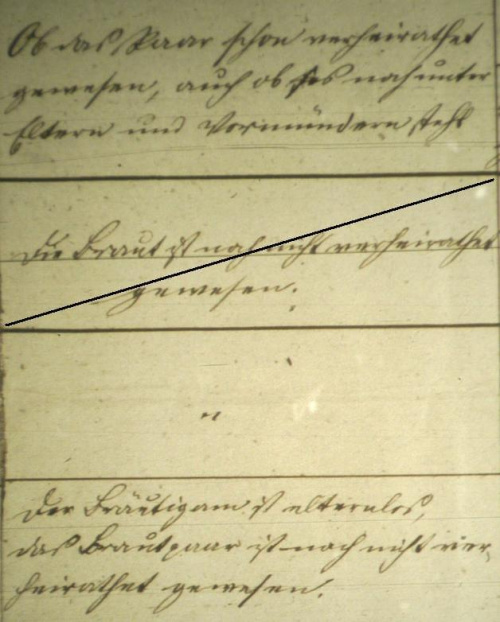 Ob das Paar schon verheirathet
gewesen, auch ob es noch unter
Eltern und Vormündern steht
Die Braut ist noch nicht verheirathet
gewesen.
"
Der Bräutigam ist elternlos,
das Brautpaar ist noch nicht ver-
heirathet gewesen.